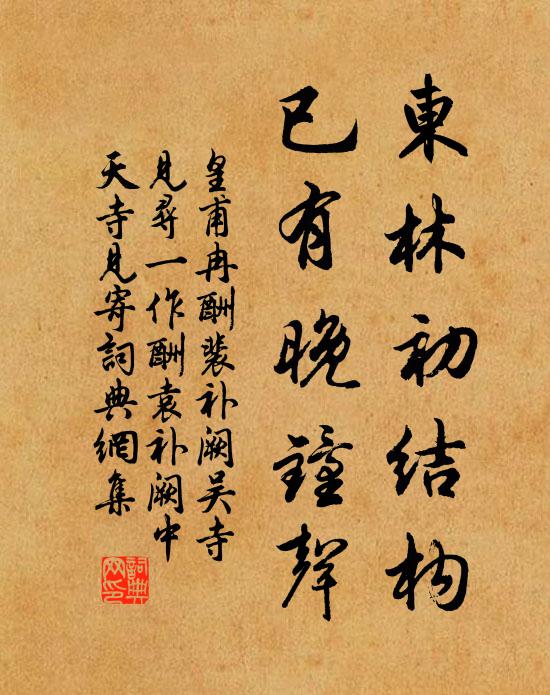 東林初结构
已有晚鐘聲
皇甫冉酬裴补阙吴寺
见尋一作酬袁补阙中
天寺见寄詞典網集
詞典
网印